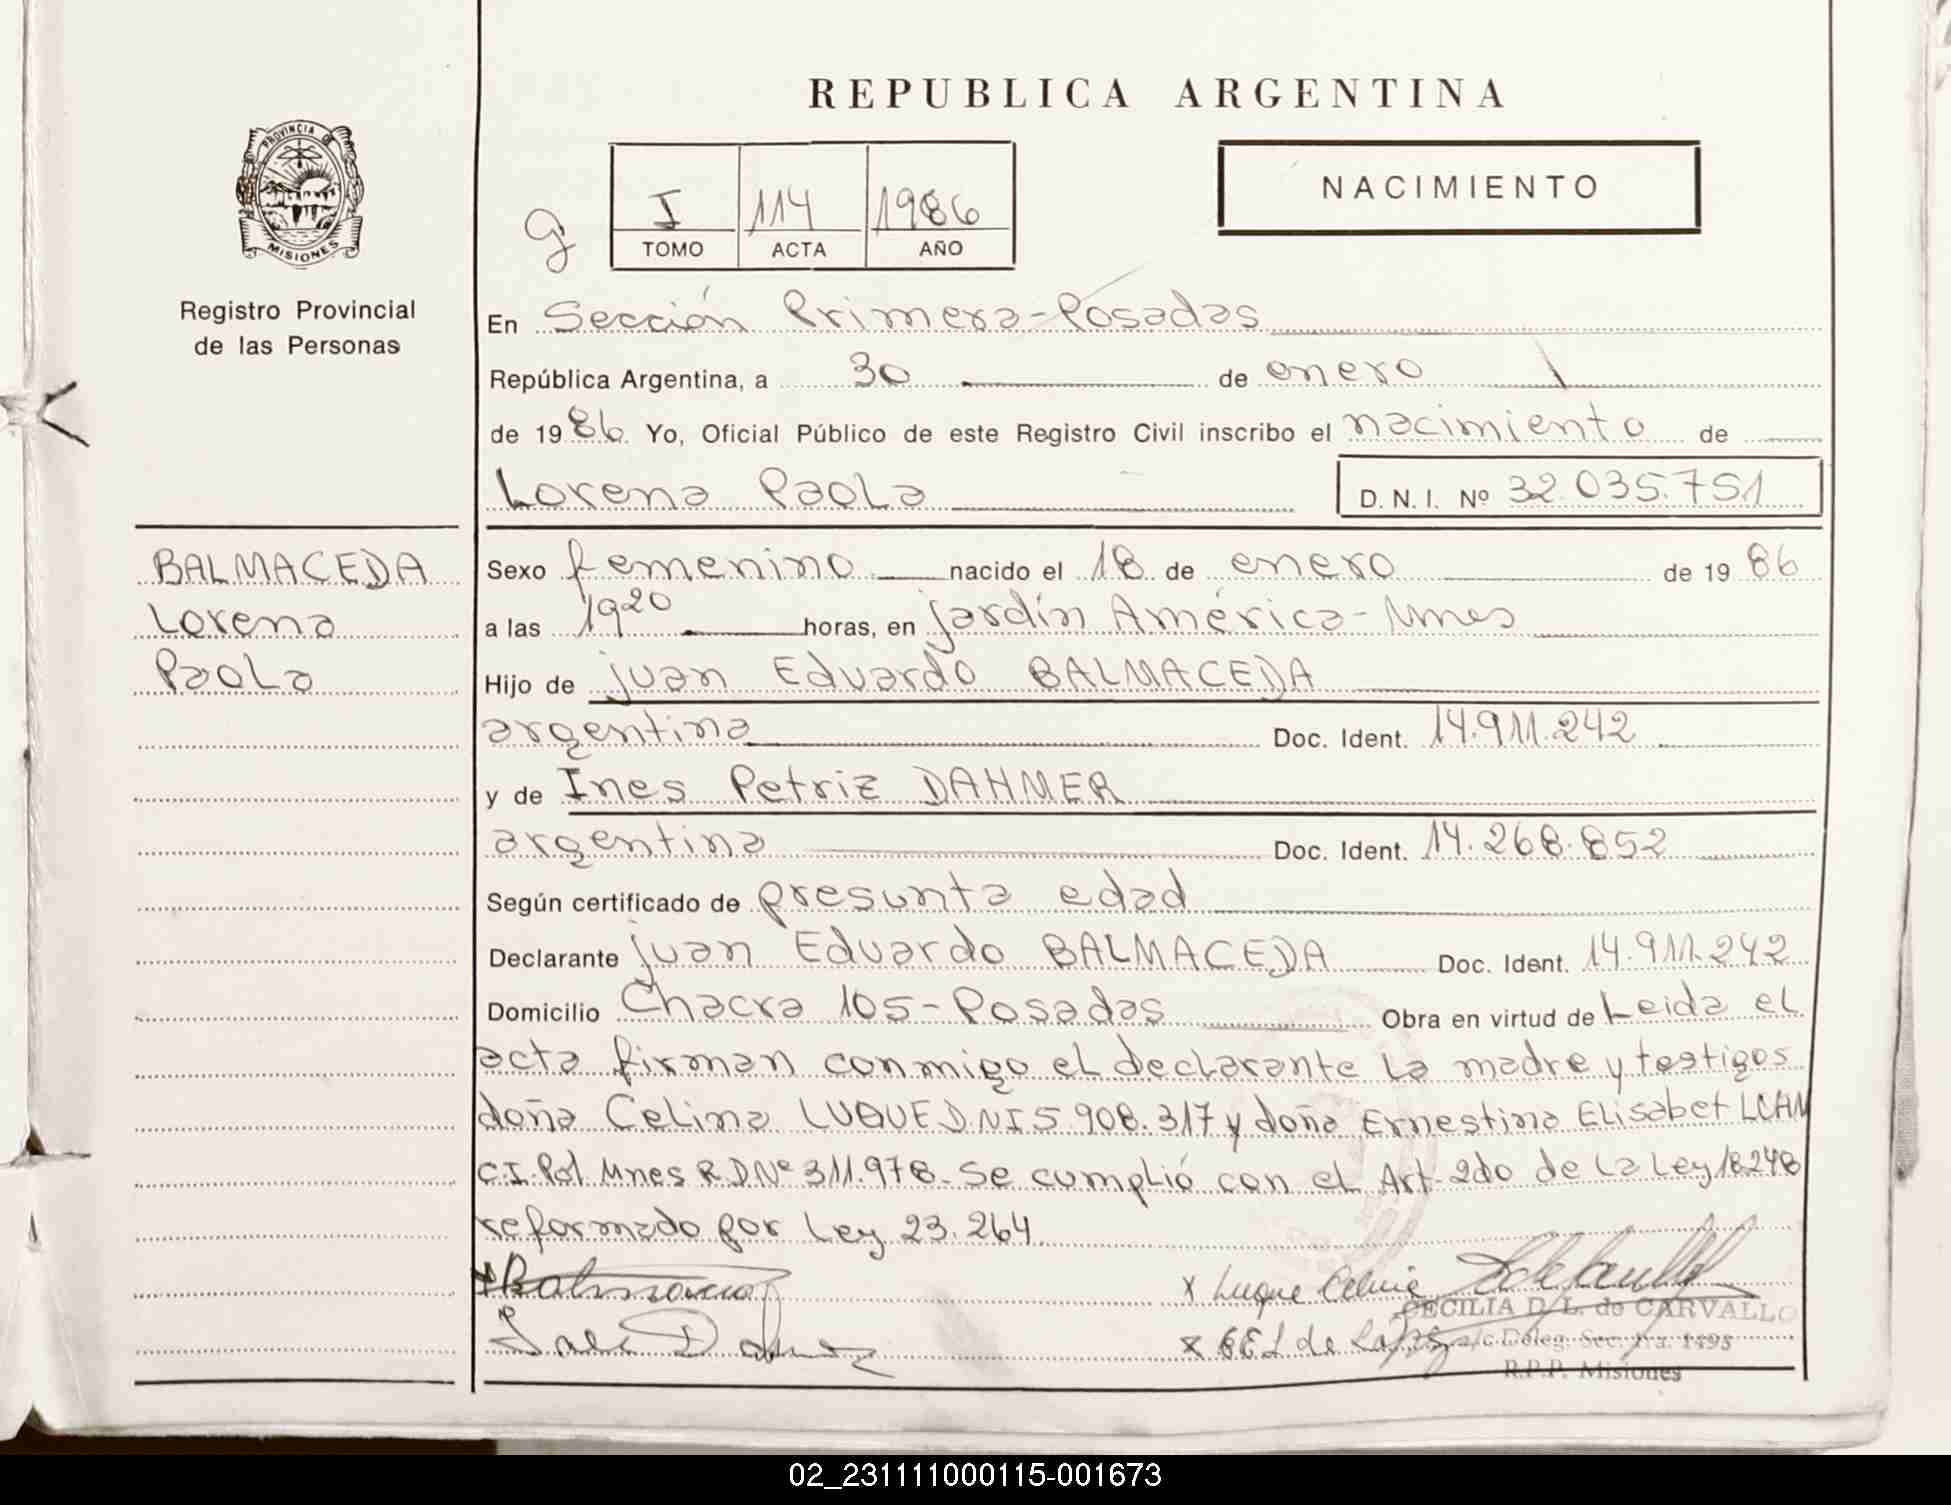 REPUBLICA ARGENTINA
PROVINCIA DE
MISIONES
Registro Provincial
de las Personas
I 114 1986
TOMO ACTA AÑO
NACIMIENTO
En Sección Primera-Posadas
República Argentina, a 30 de enero
de 1986. Yo, Oficial Público de este Registro Civil inscribo el nacimiento de
Lorena Paola D. N. I. Nº 32.035.751
BALMACEDA
Lorena
Paola
Sexo femenino nacido el 18 de enero de 1986
a las 1920 horas, en jardín América-Mnes
Hijo de juan Eduardo BALMACEDA
argentina Doc. Ident. 14.911.242
y de Ines Petriz DAHMER
argentina Doc. Ident. 14.268.852
Según certificado de presunta edad
Declarante juan Eduardo BALMACEDA Doc. Ident. 14.911.242
Domicilio Chacra 105-Posadas Obra en virtud de Leida el
acta firman conmigo el declarante la madre y testigos
doña Celina LUQUE D.N.I 5.908.317 y doña Ernestina Elisabet
C.I. Pol Mnes R.D Nº 311.978. Se cumplió con el Art. 2do de la Ley 18248
reformado por Ley 23.264
x Luque Celina
CECILIA D. L. de CARVALLO
a/c Deleg. Sec. 1ra. 1495
R.P.P. Misiones
02_231111000115-001673